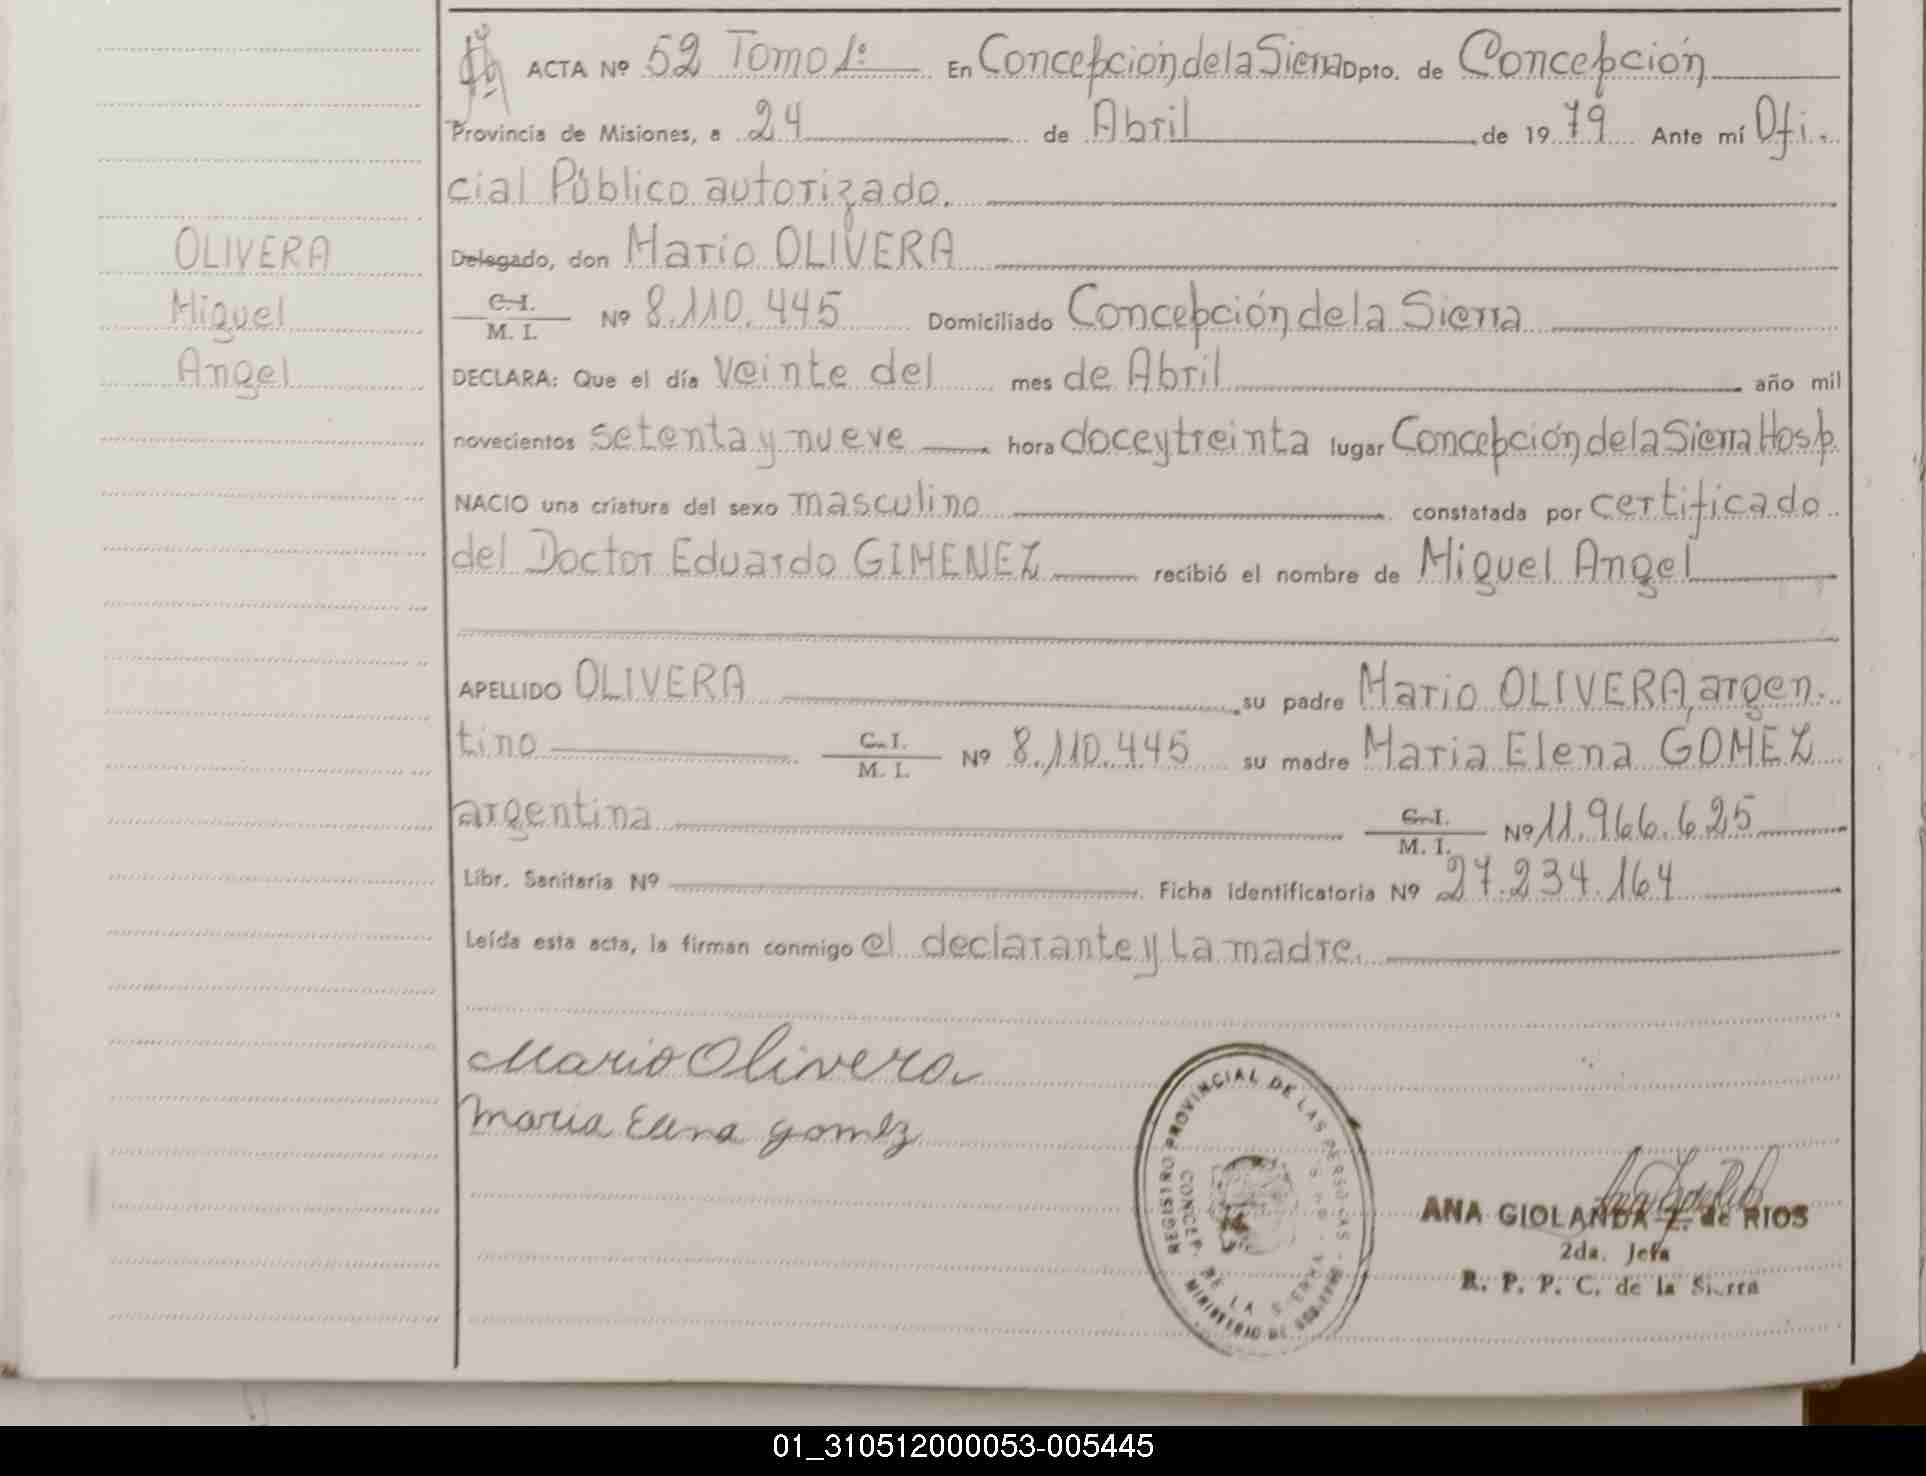 ACTA Nº 52 Tomo 1: En Concepción de la Sierra Dpto. de Concepción
Provincia de Misiones, a 24 de Abril de 1979 Ante mí Ofi-
cial Público autorizado.
OLIVERA
Delegado, don Mario OLIVERA
Miguel
C. I.
M. I. Nº 8.110.445 Domiciliado Concepción de la Sierra
Angel
DECLARA: Que el día veinte del mes de Abril año mil
novecientos setenta y nueve hora doce y treinta lugar Concepción de la Sierra Hosp.
NACIO una criatura del sexo masculino constatada por certificado
del Doctor Eduardo GIMENEZ recibió el nombre de Miguel Angel
APELLIDO OLIVERA su padre Mario OLIVERA, argen-
tino C. I. M. I. Nº 8.110.445 su madre Maria Elena GOMEZ
argentina C. I. M. I. Nº 11.966.625
Libr. Sanitaria Nº Ficha identificatoria Nº 27.234.164
Leída esta acta, la firman conmigo el declarante y La madre.
Mario Olivera
Maria Elena gomez
REGISTRO PROVINCIAL DE LAS PERSONAS
CONCEP. DE LA SIERRA
MINISTERIO DE GOBIERNO
ANA GIOLANDA Z. de RIOS
2da. Jefa
R. P. P. C. de la Sierra
01_310512000053-005445